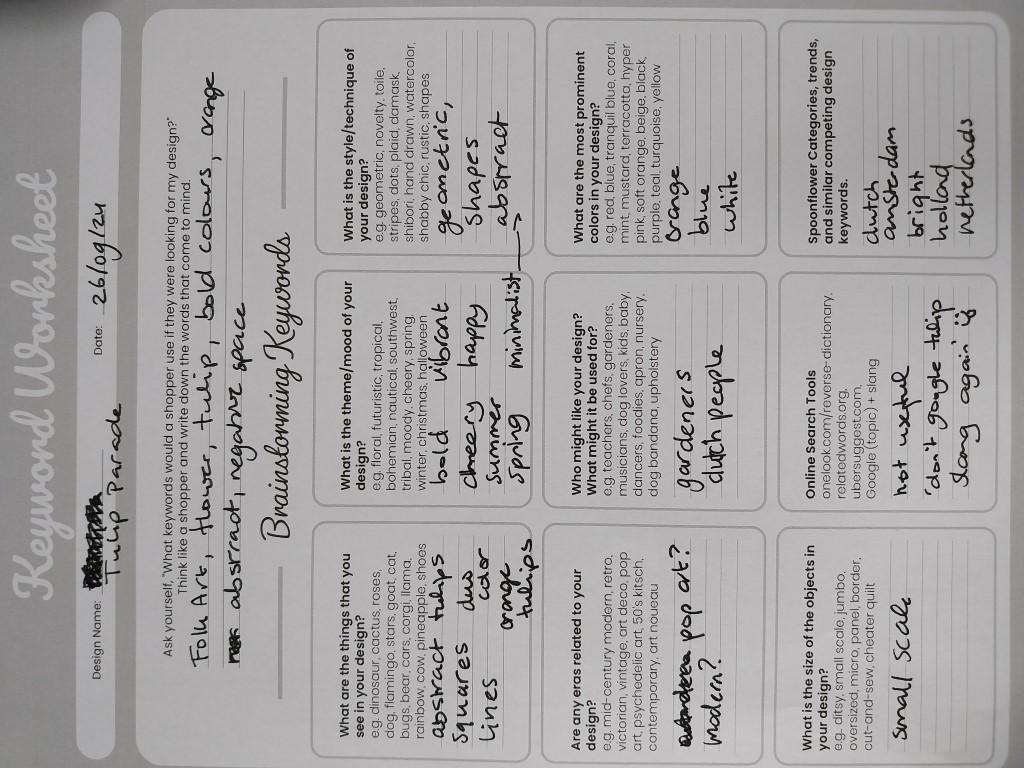 Keyword Worksheet
Design Name: Tulip Parade Date: 26/09/24
Ask yourself, "What keywords would a shopper use if they were looking for my design?"
Think like a shopper and write down the words that come to mind.
Folk Art, flower, tulip, bold colours, orange
abstract, negative space
Brainstorming Keywords
What are the things that you
see in your design?
e.g. dinosaur, cactus, roses,
dog, flamingo, stars, goat, cat,
bugs, bear, cars, corgi, llama,
rainbow, cow, pineapple, shoes
abstract tulips
squares duo
lines color
orange
tulips
What is the theme/mood of your
design?
e.g. floral, futuristic, tropical,
bohemian, nautical, southwest,
tribal, moody, cheery, spring,
winter, christmas, halloween
bold vibrant
cheery happy
summer
spring minimalist →
What is the style/technique of
your design?
e.g. geometric, novelty, toile,
stripes, dots, plaid, damask,
shibori, hand drawn, watercolor,
shabby chic, rustic, shapes
geometric,
shapes
abstract
Are any eras related to your
design?
e.g. mid-century modern, retro,
victorian, vintage, art deco, pop
art, psychedelic art, 50's kitsch,
contemporary, art noueau
pop art?
modern?
Who might like your design?
What might it be used for?
e.g. teachers, chefs, gardeners,
musicians, dog lovers, kids, baby,
dancers, foodies, apron, nursery,
dog bandana, upholstery
gardeners
dutch people
What are the most prominent
colors in your design?
e.g. red, blue, tranquil blue, coral,
mint, mustard, terracotta, hyper
pink, soft orange, beige, black,
purple, teal, turquoise, yellow
orange
blue
white
What is the size of the objects in
your design?
e.g. ditsy, small scale, jumbo,
oversized, micro, panel, border,
cut-and-sew, cheater quilt
small scale
Online Search Tools
onelook.com/reverse-dictionary,
relatedwords.org,
ubersuggest.com,
Google (topic) + slang
not useful
'don't google tulip
slang again'
Spoonflower Categories, trends,
and similar competing design
keywords.
dutch
amsterdam
bright
holland
netherlands